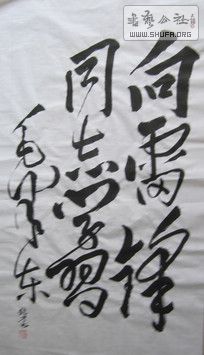 向雷锋
同志学习
毛泽东
書藝公社
WWW.SHUFA.ORG